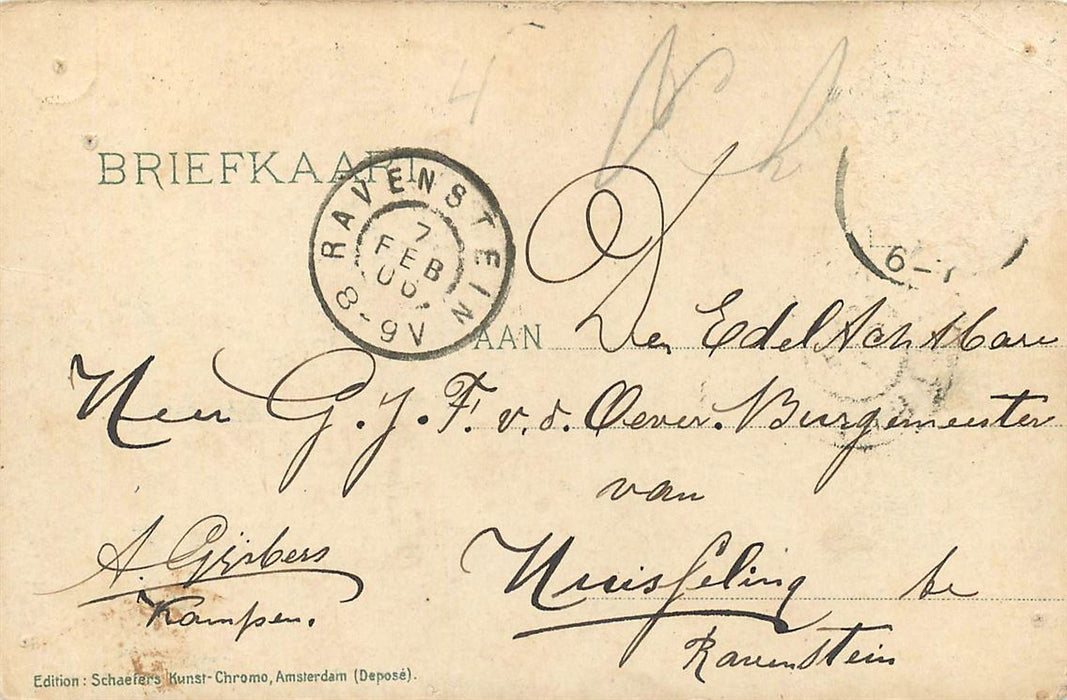 BRIEFKAART
RAVENSTEIN
7
FEB
06
8-9V
6-
AAN Den EdelAchtbare
Heer G. J. F. v. d. Oever. Burgemeester
van
Huisseling te
Ravenstein
A. Gijsbers
Kampen.
Edition: Schaefers Kunst-Chromo, Amsterdam (Deposé).